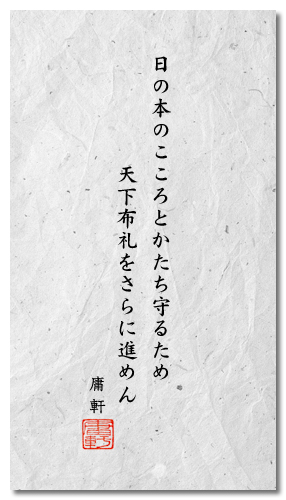 日の本のこころとかたち守るため
天下布礼をさらに進めん
庸軒
庸軒